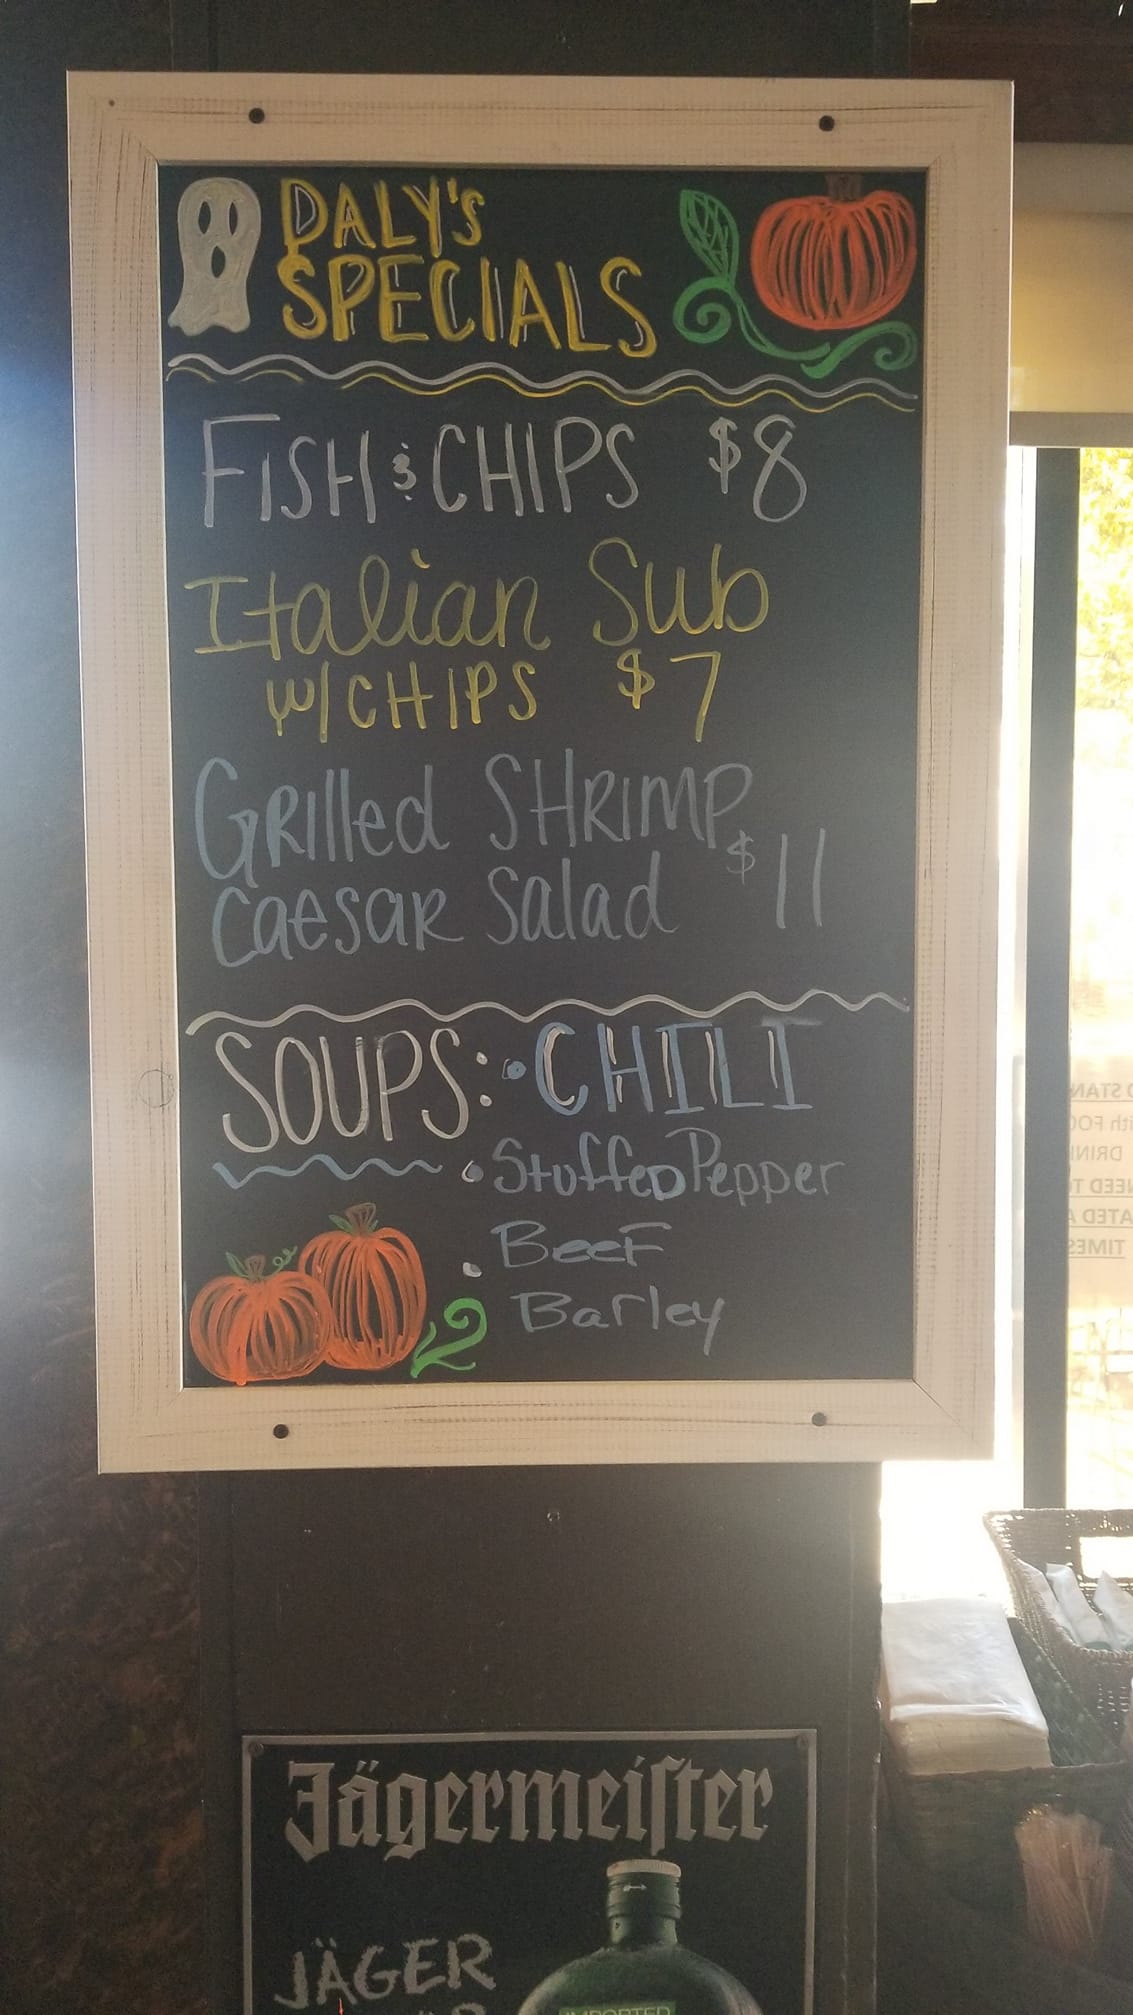 DALY'S
SPECIALS
FISH & CHIPS $8
Italian Sub
w/CHIPS $7
GRilled SHRIMP
CAESAR Salad $11
SOUPS: • CHILI
• StuffeD Pepper
• BeeF
Barley
Jägermeister
JÄGER
IMPORTED
STAN
ith FOO
DRIN
NEED TO
ATED A
TIMES